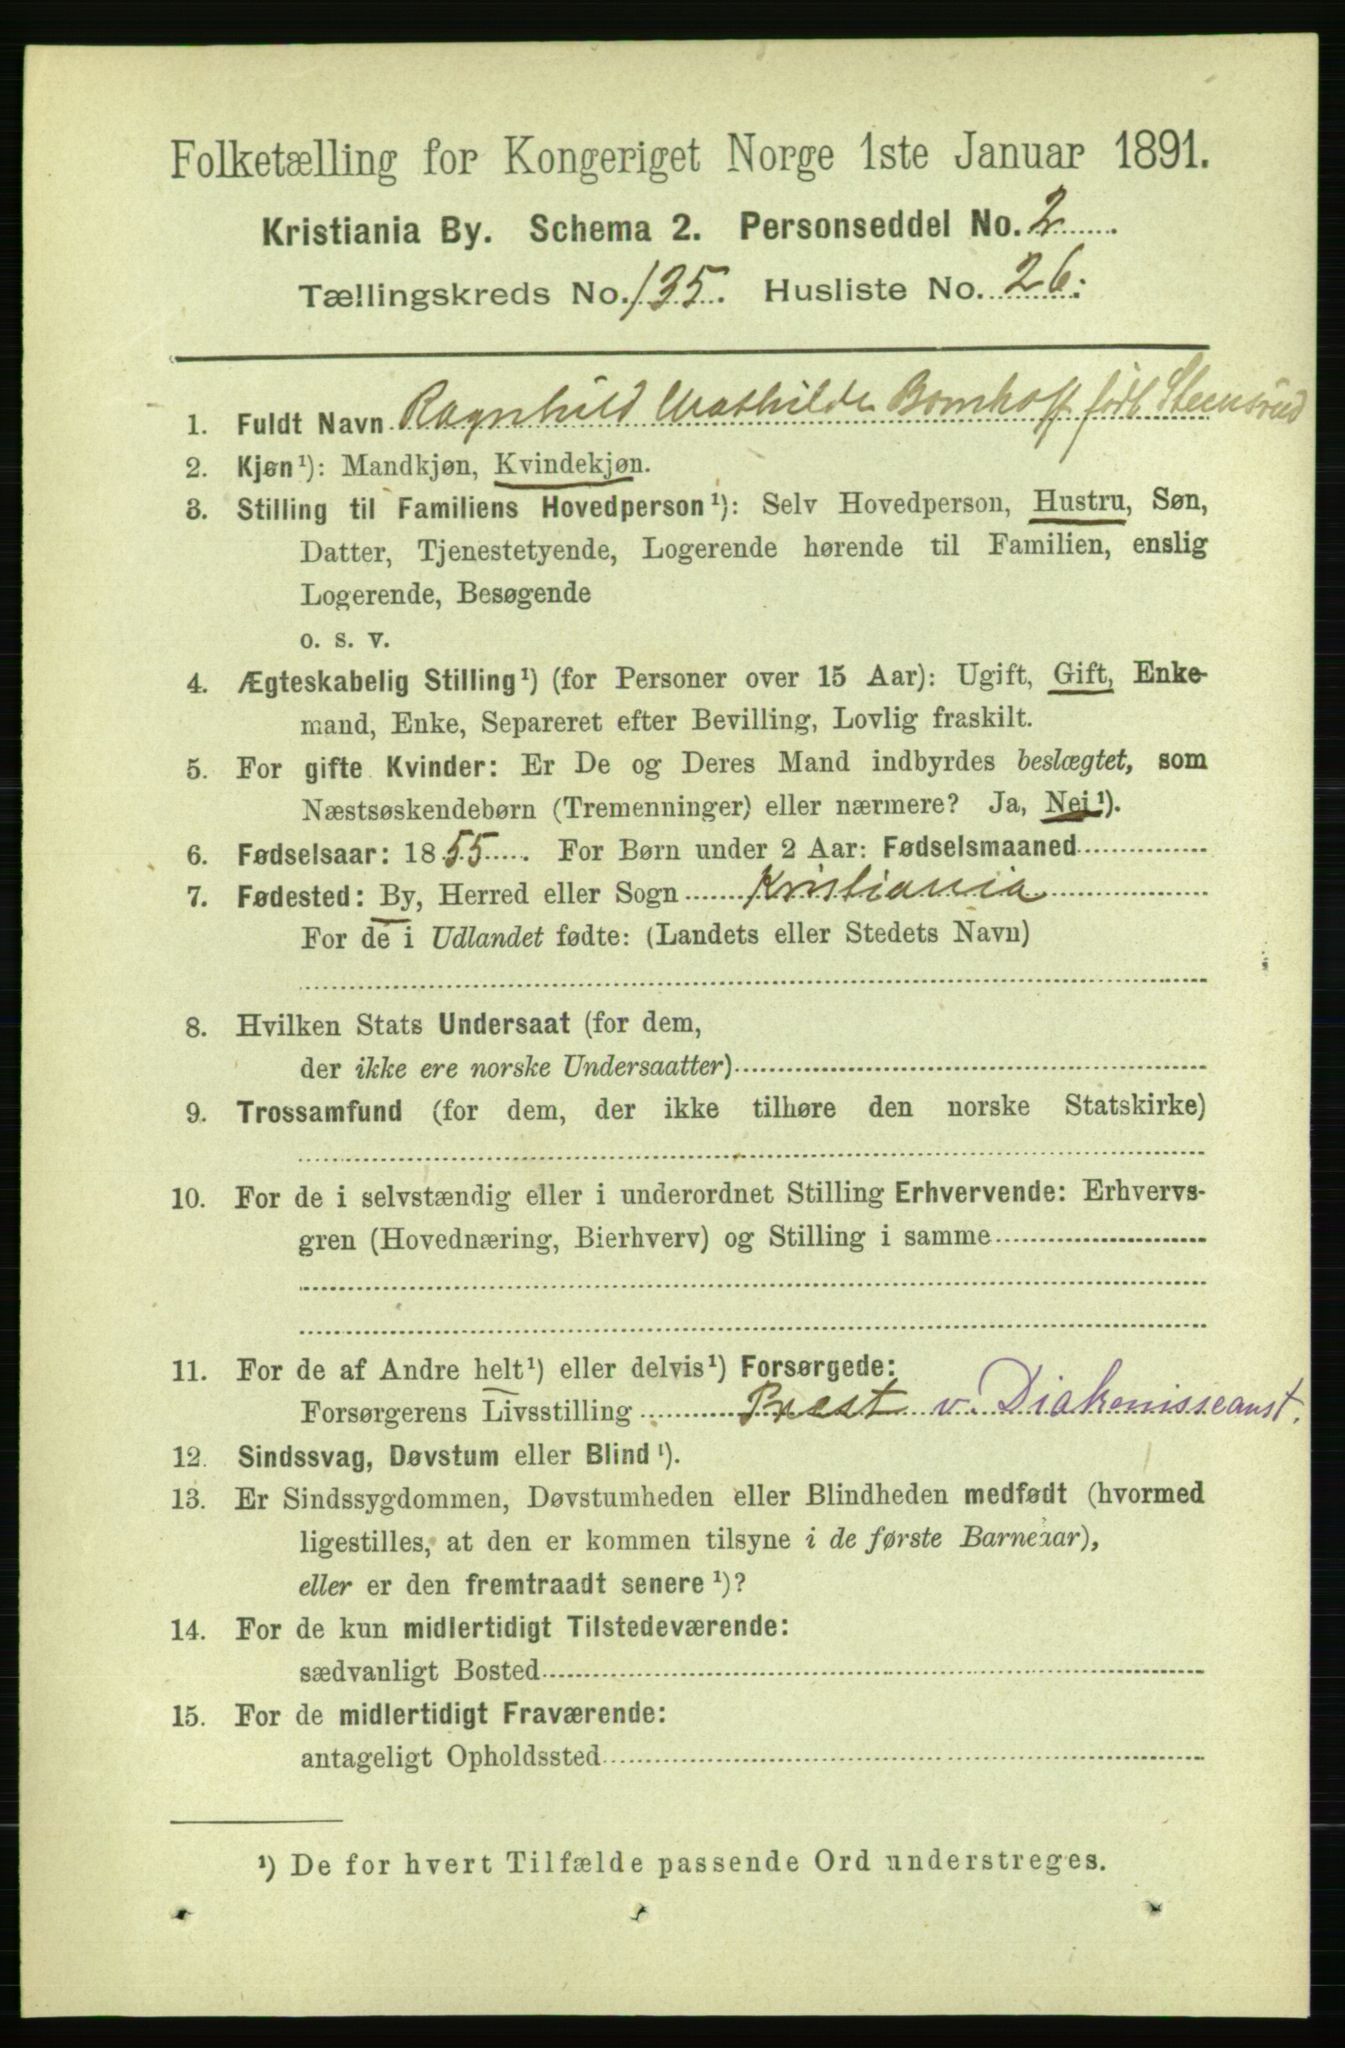 Folketælling for Kongeriget Norge 1ste Januar 1891.
Kristiania By. Schema 2. Personseddel No. 2
Tællingskreds No. 135. Husliste No. 26.
1. Fuldt Navn Ragnhild Mathilde Bomhoff født Steensrud
2. Kjøn¹): Mandkjøn, Kvindekjøn.
3. Stilling til Familiens Hovedperson¹): Selv Hovedperson, Hustru, Søn,
Datter, Tjenestetyende, Logerende hørende til Familien, enslig
Logerende, Besøgende
o. s. v.
4. Ægteskabelig Stilling¹) (for Personer over 15 Aar): Ugift, Gift, Enke-
mand, Enke, Separeret efter Bevilling, Lovlig fraskilt.
5. For gifte Kvinder: Er De og Deres Mand indbyrdes beslægtet, som
Næstsøskendebørn (Tremenninger) eller nærmere? Ja, Nei¹).
6. Fødselsaar: 1855. For Børn under 2 Aar: Fødselsmaaned
7. Fødested: By, Herred eller Sogn Kristiania
For de i Udlandet fødte: (Landets eller Stedets Navn)
8. Hvilken Stats Undersaat (for dem,
der ikke ere norske Undersaatter)
9. Trossamfund (for dem, der ikke tilhøre den norske Statskirke)
10. For de i selvstændig eller i underordnet Stilling Erhvervende: Erhvervs-
gren (Hovednæring, Bierhverv) og Stilling i samme
11. For de af Andre helt¹) eller delvis¹) Forsørgede:
Forsørgerens Livsstilling Præst v. Diakonisseanst.
12. Sindssvag, Døvstum eller Blind¹).
13. Er Sindssygdommen, Døvstumheden eller Blindheden medfødt (hvormed
ligestilles, at den er kommen tilsyne i de første Barneaar),
eller er den fremtraadt senere¹)?
14. For de kun midlertidigt Tilstedeværende:
sædvanligt Bosted
15. For de midlertidigt Fraværende:
antageligt Opholdssted
¹) De for hvert Tilfælde passende Ord understreges.